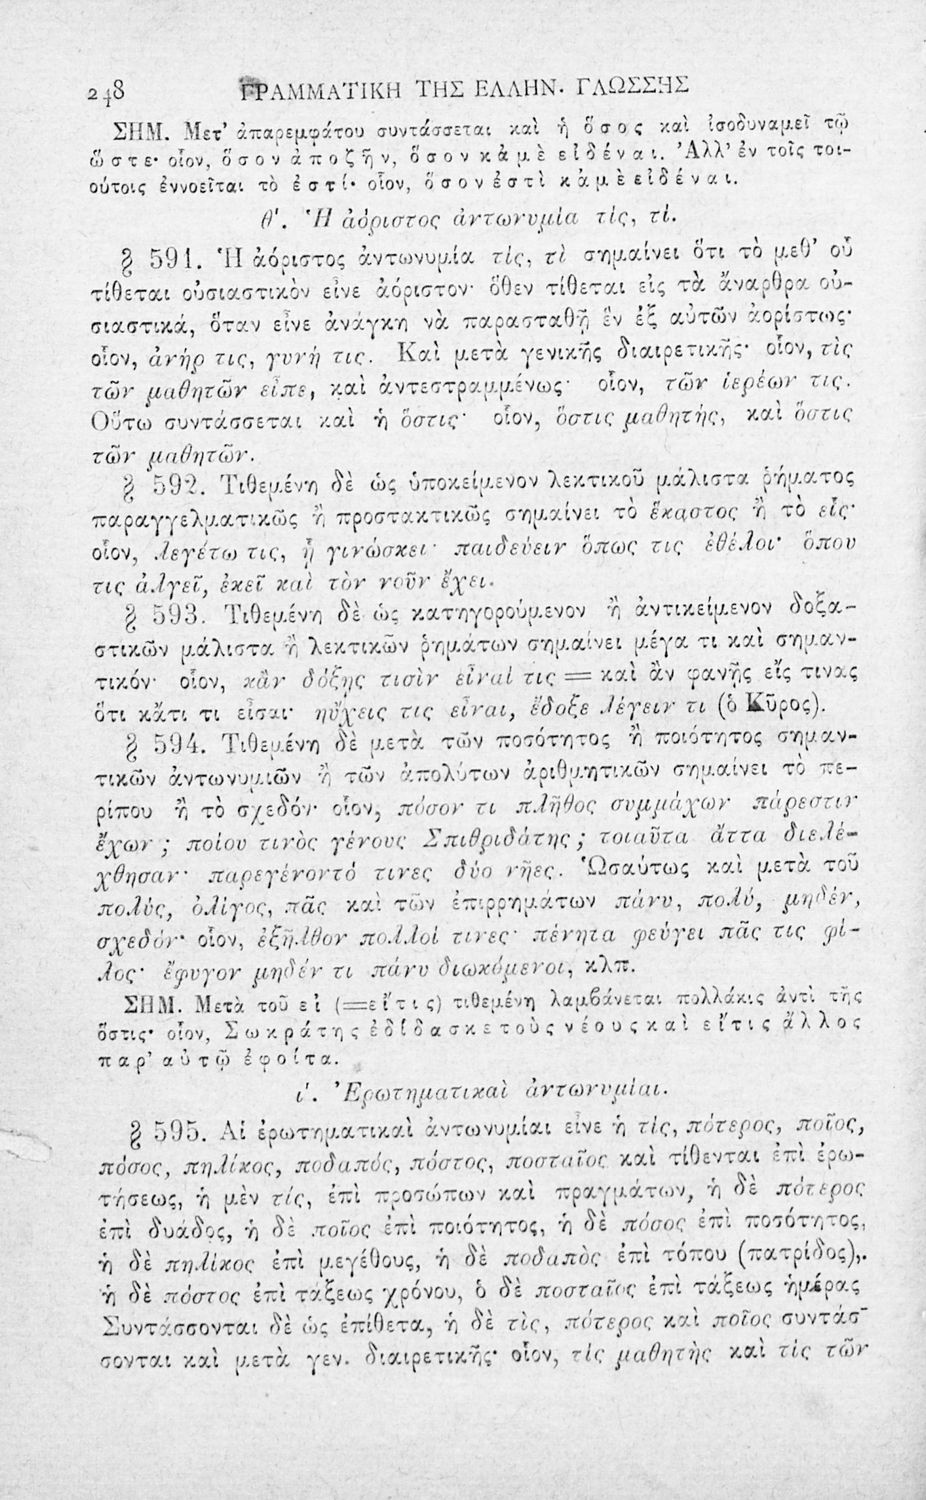 248 ΓΡΑΜΜΑΤΙΚΗ ΤΗΣ ΕΛΛΗΝ. ΓΛΩΣΣΗΣ
ΣΗΜ. Μετ’ ἀπαρεμφάτου συντάσσεται καὶ ἡ ὅσος καὶ ἰσοδυναμεῖ τῷ
ὥστε· οἷον, ὅσον ἀποζῆν, ὅσον κἀμὲ εἰδέναι. Ἀλλ’ ἐν τοῖς τοι-
ούτοις ἐννοεῖται τὸ ἐστί· οἷον, ὅσον ἐστὶ κἀμὲ εἰδέναι.
θ'. Ἡ ἀόριστος ἀντωνυμία τίς, τί.
§ 591. Ἡ ἀόριστος ἀντωνυμία τίς, τὶ σημαίνει ὅτι τὸ μεθ’ οὗ
τίθεται οὐσιαστικὸν εἶνε ἀόριστον· ὅθεν τίθεται εἰς τὰ ἄναρθρα οὐ-
σιαστικά, ὅταν εἶνε ἀνάγκη νὰ παρασταθῇ ἓν ἐξ αὐτῶν ἀορίστως·
οἷον, ἀνήρ τις, γυνή τις. Καὶ μετὰ γενικῆς διαιρετικῆς· οἷον, τὶς
τῶν μαθητῶν εἶπε, καὶ ἀντεστραμμένως· οἷον, τῶν ἱερέων τις.
Οὕτω συντάσσεται καὶ ἡ ὅστις· οἷον, ὅστις μαθητής, καὶ ὅστις
τῶν μαθητῶν.
§ 592. Τιθεμένη δὲ ὡς ὑποκείμενον λεκτικοῦ μάλιστα ῥήματος
παραγγελματικῶς ἢ προστακτικῶς σημαίνει τὸ ἕκαστος ἢ τὸ εἷς·
οἷον, λεγέτω τις, ᾗ γινώσκει· παιδεύειν ὅπως τις ἐθέλοι· ὅπου
τις ἀλγεῖ, ἐκεῖ καὶ τὸν νοῦν ἔχει.
§ 593. Τιθεμένη δὲ ὡς κατηγορούμενον ἢ ἀντικείμενον δοξα-
στικῶν μάλιστα ἢ λεκτικῶν ῥημάτων σημαίνει μέγα τι καὶ σημαν-
τικόν· οἷον, κἂν δόξῃς τισὶν εἶναί τις = καὶ ἂν φανῇς εἴς τινας
ὅτι κἄτι τι εἶσαι· ηὔχεις τις εἶναι, ἔδοξε λέγειν τι (ὁ Κῦρος).
§ 594. Τιθεμένη δὲ μετὰ τῶν ποσότητος ἢ ποιότητος σημαν-
τικῶν ἀντωνυμιῶν ἢ τῶν ἀπολύτων ἀριθμητικῶν σημαίνει τὸ πε-
ρίπου ἢ τὸ σχεδόν· οἷον, πόσον τι πλῆθος συμμάχων πάρεστιν
ἔχων; ποίου τινὸς γένους Σπιθριδάτης; τοιαῦτα ἄττα διελέ-
χθησαν· παρεγένοντό τινες δύο νῆες. Ὡσαύτως καὶ μετὰ τοῦ
πολύς, ὀλίγος, πᾶς καὶ τῶν ἐπιρρημάτων πάνυ, πολύ, μηδέν,
σχεδόν· οἷον, ἐξῆλθον πολλοί τινες· πένητα φεύγει πᾶς τις φί-
λος· ἔφυγον μηδέν τι πάνυ διωκόμενοι, κλπ.
ΣΗΜ. Μετὰ τοῦ εἰ (=εἴτις) τιθεμένη λαμβάνεται πολλάκις ἀντὶ τῆς
ὅστις· οἷον, Σωκράτης ἐδίδασκε τοὺς νέους καὶ εἴτις ἄλλος
παρ’ αὐτῷ ἐφοίτα.
ι'. Ἐρωτηματικαὶ ἀντωνυμίαι.
§ 595. Αἱ ἐρωτηματικαὶ ἀντωνυμίαι εἶνε ἡ τίς, πότερος, ποῖος,
πόσος, πηλίκος, ποδαπός, πόστος, ποσταῖος καὶ τίθενται ἐπὶ ἐρω-
τήσεως, ἡ μὲν τίς, ἐπὶ προσώπων καὶ πραγμάτων, ἡ δὲ πότερος
ἐπὶ δυάδος, ἡ δὲ ποῖος ἐπὶ ποιότητος, ἡ δὲ πόσος ἐπὶ ποσότητος,
ἡ δὲ πηλίκος ἐπὶ μεγέθους, ἡ δὲ ποδαπὸς ἐπὶ τόπου (πατρίδος),.
ἡ δὲ πόστος ἐπὶ τάξεως χρόνου, ὁ δὲ ποσταῖος ἐπὶ τάξεως ἡμέρας
Συντάσσονται δὲ ὡς ἐπίθετα, ἡ δὲ τὶς, πότερος καὶ ποῖος συντάσ-
σονται καὶ μετὰ γεν. διαιρετικῆς· οἷον, τίς μαθητὴς καὶ τίς τῶν